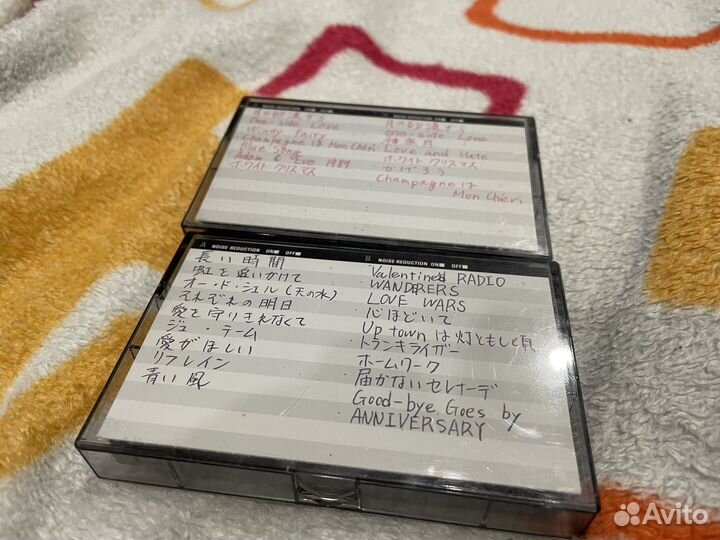 One-side Love
Champagne は Mon Chéri
Blue Song
Adam & Eve 1989
ホワイト クリスマス
one-side Love
Love and Hate
ホワイト クリスマス
かげろう
Champagne は
Mon Chéri
A NOISE REDUCTION ON OFF
長い時間
虹を追いかけて
オー・ド・シェル(天の水)
それぞれの明日
愛を守りきれなくて
ジュ・テーム
愛がほしい
リフレイン
青い風
B NOISE REDUCTION ON OFF
Valentine's RADIO
WANDERERS
LOVE WARS
心ほどいて
Up townは灯ともし頃
トランキライザー
ホームワーク
届かないセレナーデ
Good-bye Goes by
ANNIVERSARY
Avito